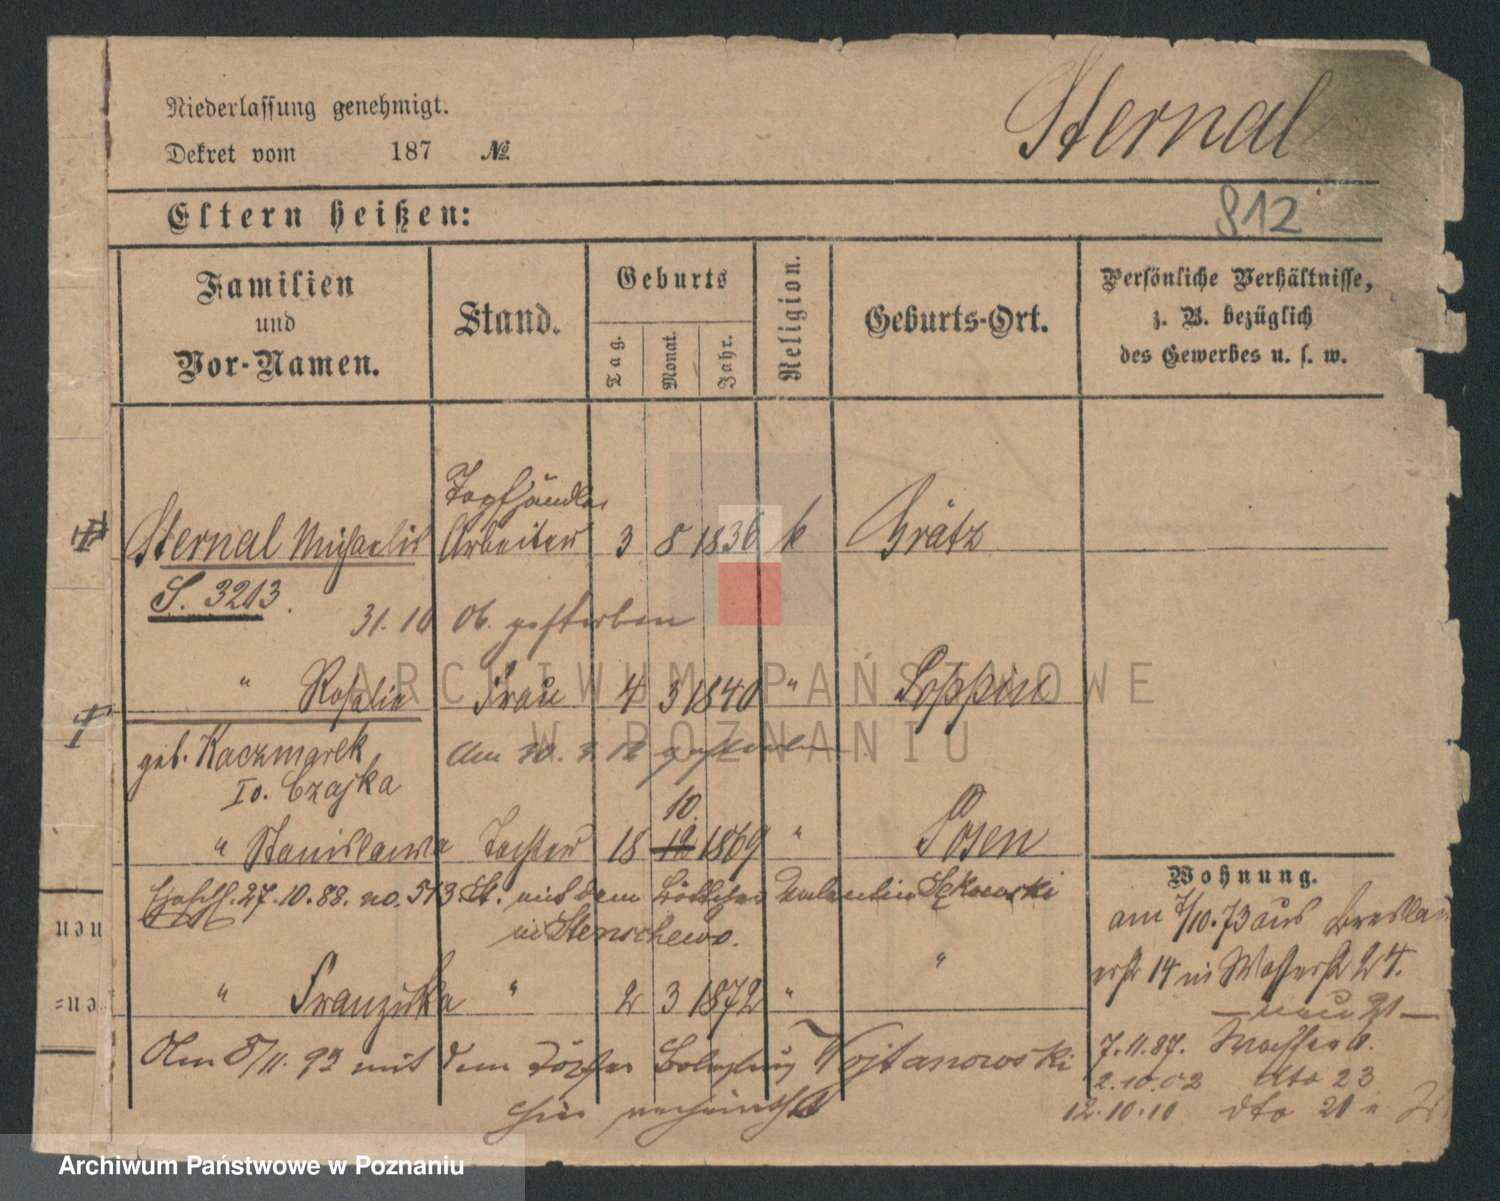 Niederlassung genehmigt.
Sternal
Dekret vom 187 №
Eltern heißen:
812
Familien
und
Vor-Namen.
Stand.
Geburts
Tag.
Monat.
Jahr.
Religion.
Geburts-Ort.
Persönliche Verhältnisse,
z. B. bezüglich
des Gewerbes u. s. w.
Topfhändler
Sternal Michaelis Arbeiter 3 8 1836 k Grätz
S. 3213.
31. 10 06. gestorben
" Rosalie Frau 4 3 1840 "
geb. Kaczmarek,
Iv. Czajka
am 30. 3. 12 gestorben
10.
" Stanislawa Tochter 18 12 1869 " Posen
Wohnung.
27.10.88. no. 513 St. mit dem Böttcher Valentin
in Stenschewo.
am 7/10.73 aus Breslau
14 in Wasserstr 24.
" Franziska " 2 3 1872 " "
neu 21
Am 8/11. 93 mit dem Töpfer Boleslaus Wojtanowski
hier verheirathet
7.11.87.
2.10.02 dto 23
12.10.10 dto 21
nen
en=
ARCHIWUM PAŃSTWOWE
W POZNANIU
Archiwum Państwowe w Poznaniu